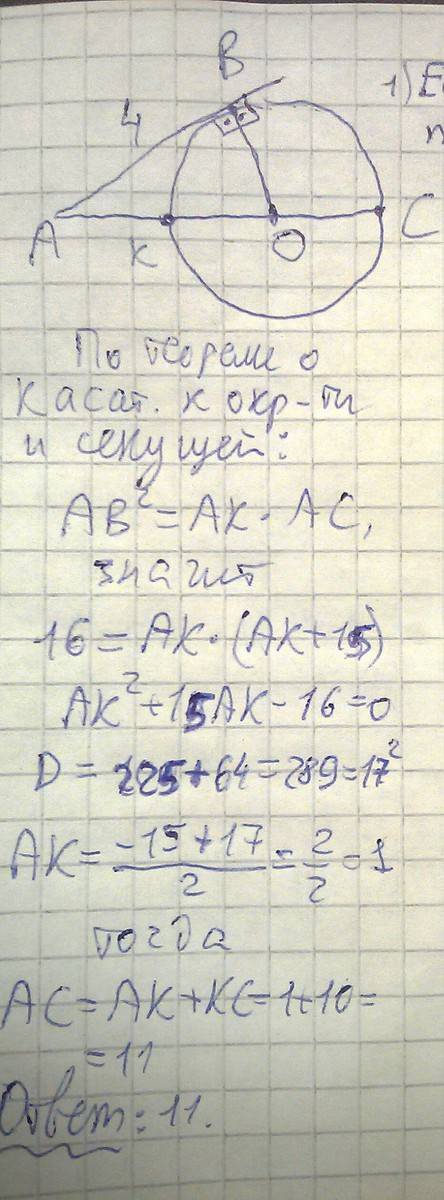 B
1) Е
4
п
A
K
O
C
По теореме о
касат. к окр-ти
и секущей:
AB² = AK · AC,
значит
16 = AK · (AK+15)
AK² + 15AK - 16 = 0
D = 225 + 64 = 289 = 17²
AK = (-15 + 17)/2 = 2/2 = 1
тогда
AC = AK + KC = 1 + 10 =
= 11
Ответ: 11.